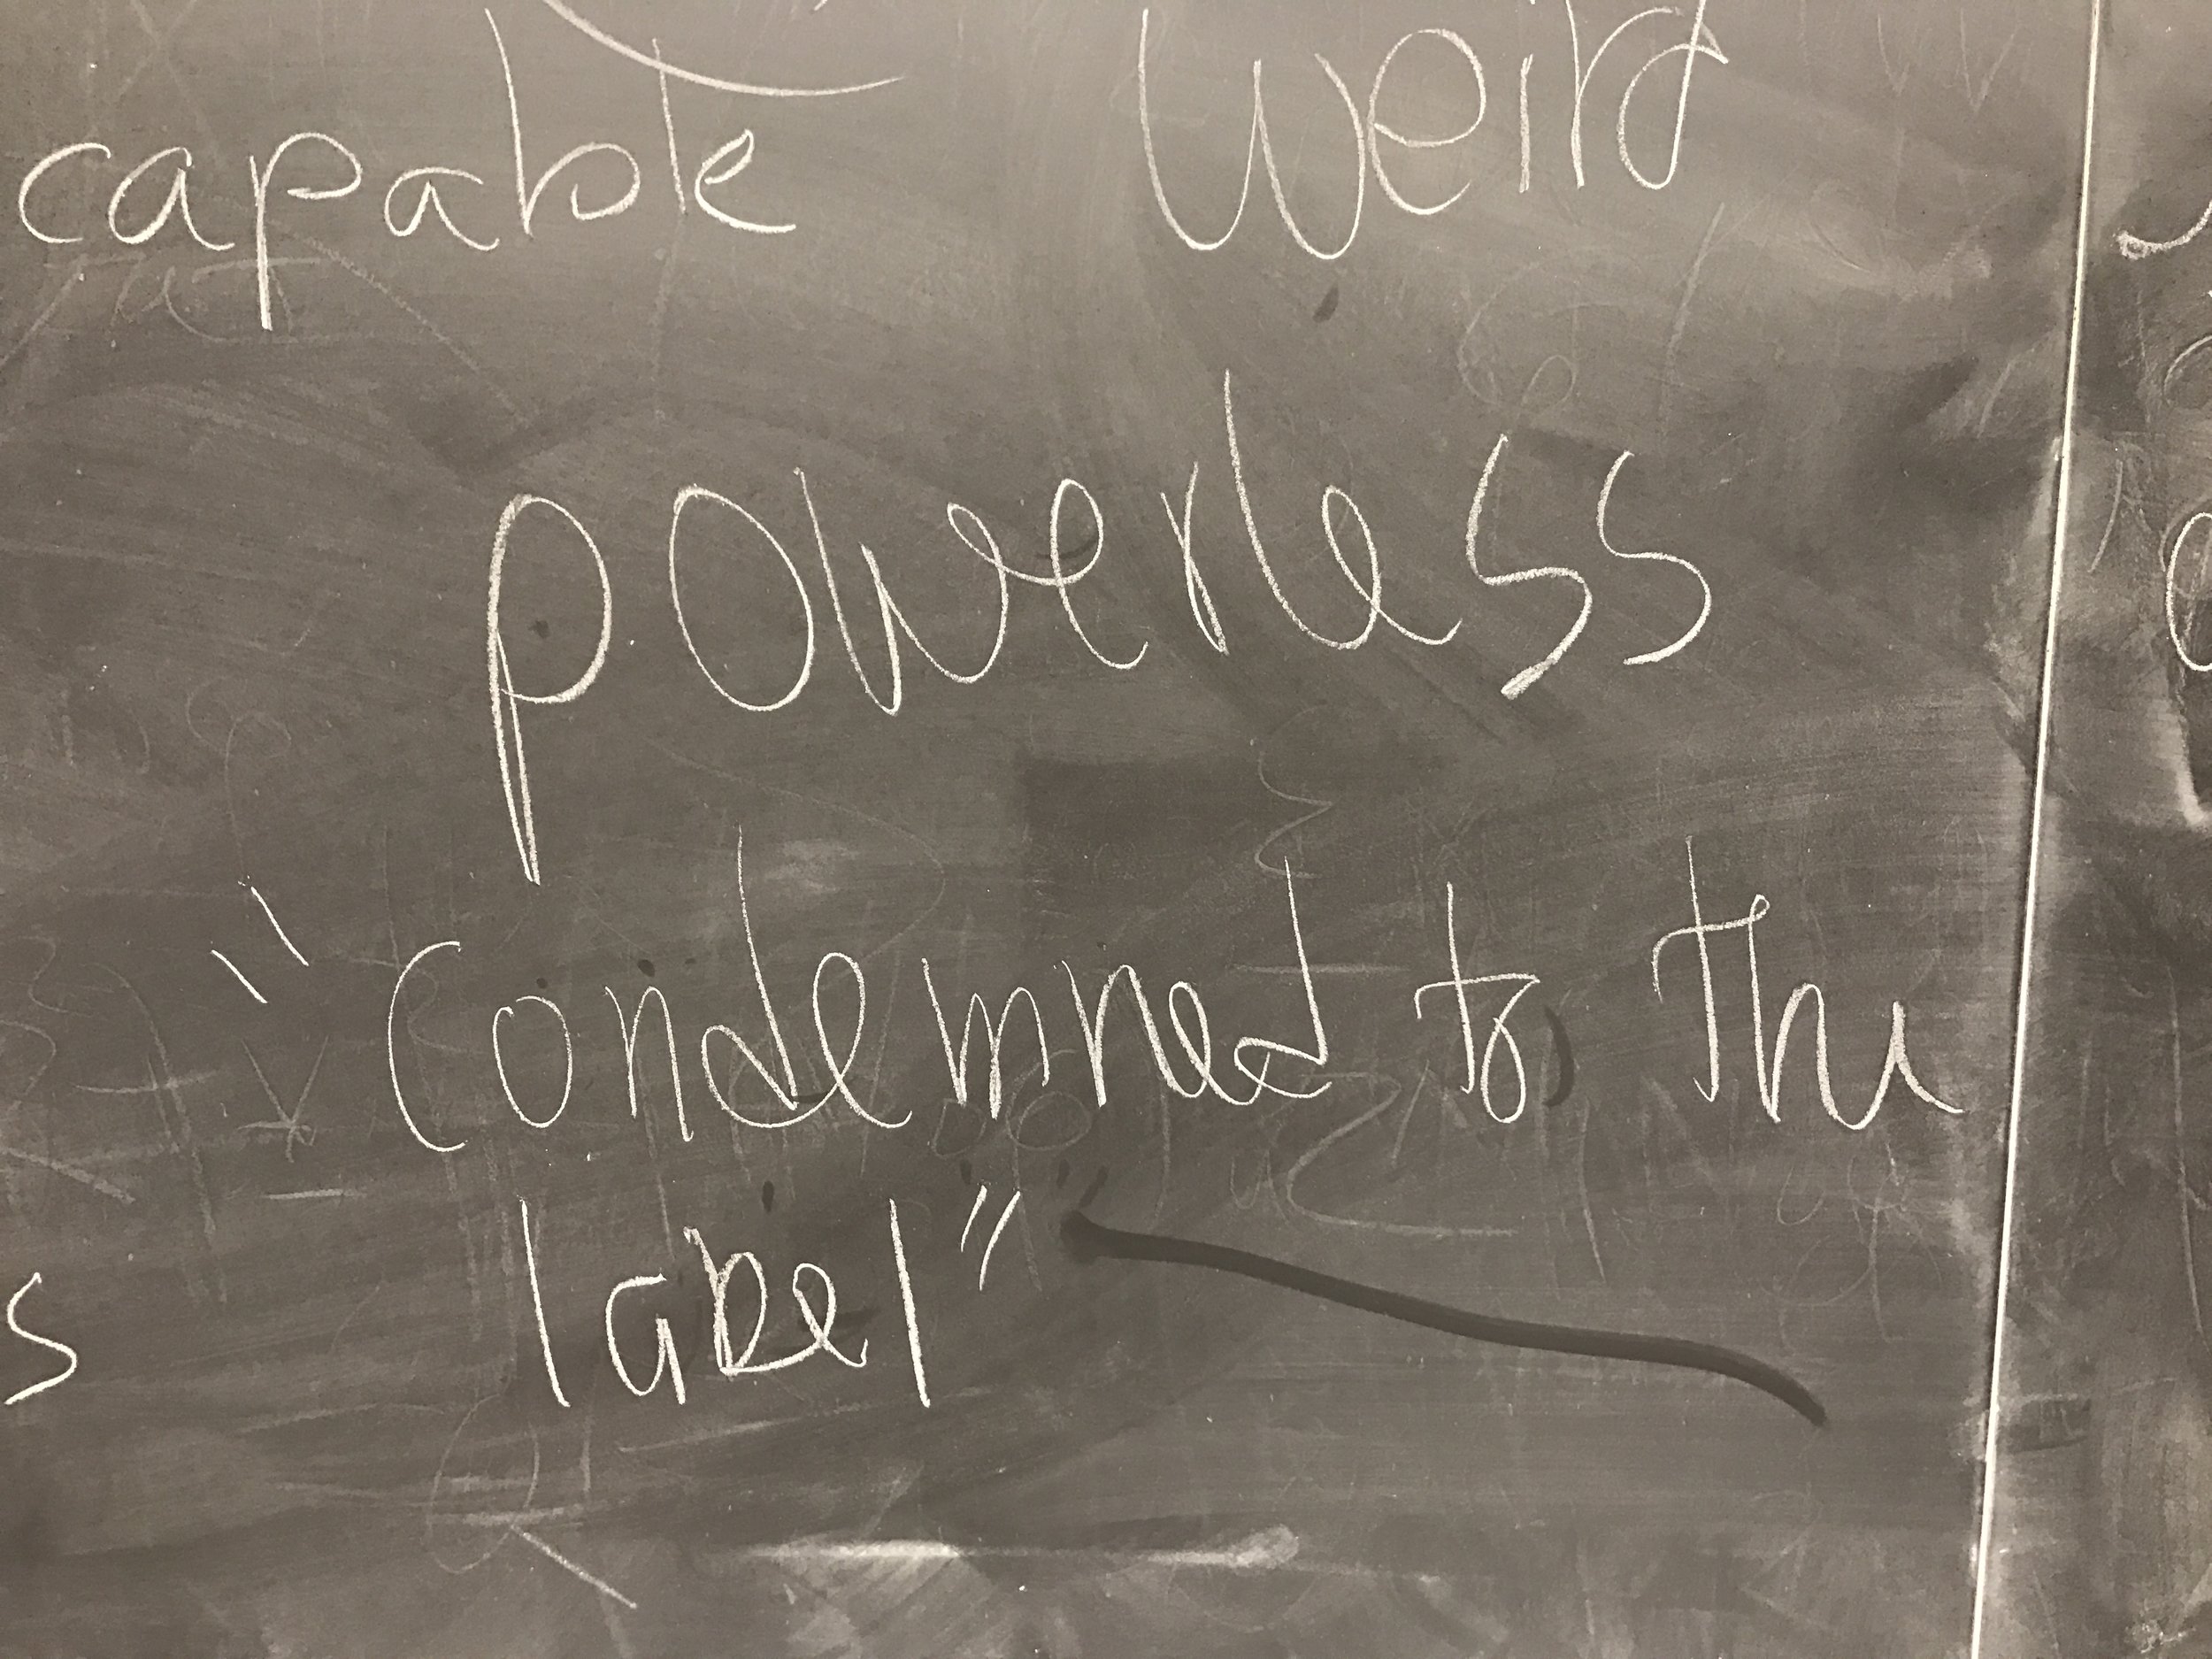 capable weird
powerless
"condemned to the
label"
s